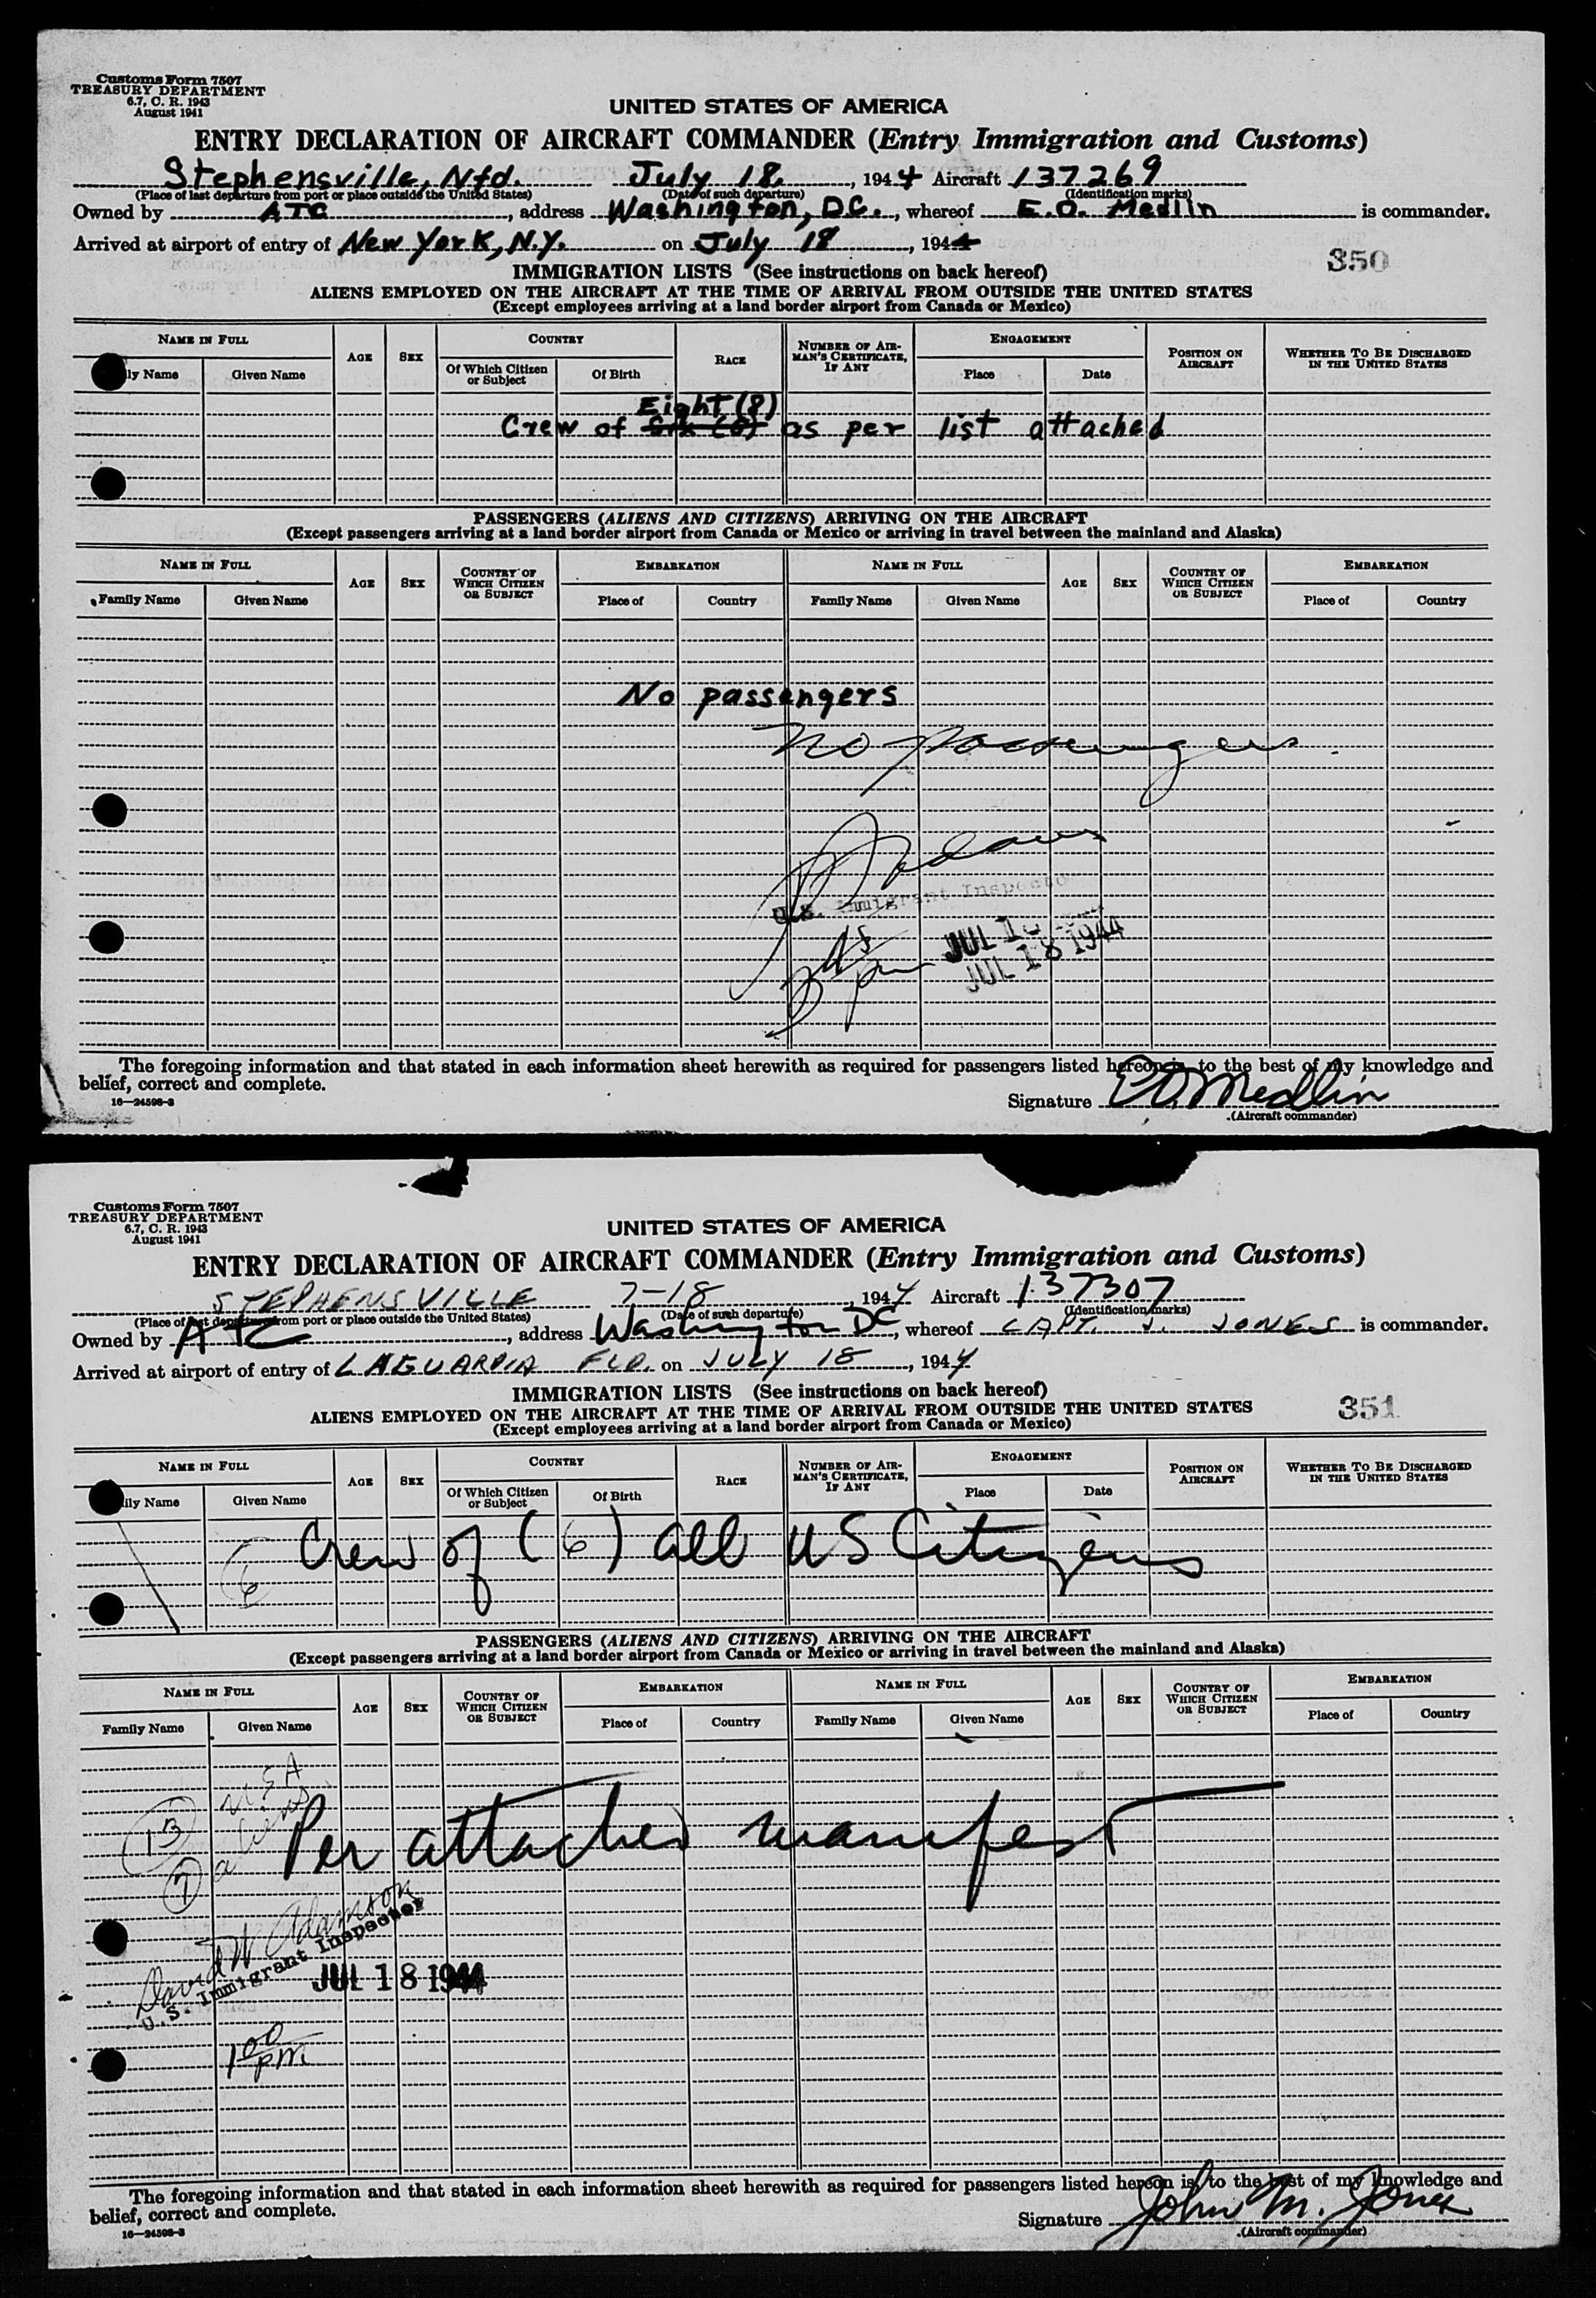 Customs Form 7507
TREASURY DEPARTMENT
6.7, C. R. 1943
August 1941
UNITED STATES OF AMERICA
ENTRY DECLARATION OF AIRCRAFT COMMANDER (Entry Immigration and Customs)
Stephensville, Nfd. July 18, 1944 Aircraft 137269
(Place of last departure from port or place outside the United States) (Date of such departure) (Identification marks)
Owned by ATC, address Washington, D.C., whereof E.O. Medlin is commander.
Arrived at airport of entry of New York, N.Y. on July 18, 1944
350
IMMIGRATION LISTS (See instructions on back hereof)
ALIENS EMPLOYED ON THE AIRCRAFT AT THE TIME OF ARRIVAL FROM OUTSIDE THE UNITED STATES
(Except employees arriving at a land border airport from Canada or Mexico)
NAME IN FULL AGE SEX COUNTRY RACE NUMBER OF AIRMAN'S CERTIFICATE, IF ANY ENGAGEMENT POSITION ON AIRCRAFT WHETHER TO BE DISCHARGED IN THE UNITED STATES
ly Name Given Name Of Which Citizen or Subject Of Birth Place Date
Eight (8)
Crew of as per list attached
PASSENGERS (ALIENS AND CITIZENS) ARRIVING ON THE AIRCRAFT
(Except passengers arriving at a land border airport from Canada or Mexico or arriving in travel between the mainland and Alaska)
NAME IN FULL AGE SEX COUNTRY OF WHICH CITIZEN OR SUBJECT EMBARKATION NAME IN FULL AGE SEX COUNTRY OF WHICH CITIZEN OR SUBJECT EMBARKATION
Family Name Given Name Place of Country Family Name Given Name Place of Country
No passengers
no passengers
U.S. Immigrant Inspector
JUL 18
JUL 18 1944
The foregoing information and that stated in each information sheet herewith as required for passengers listed hereon is to the best of my knowledge and
belief, correct and complete.
16—24598-3
Signature E O Medlin
(Aircraft commander)
Customs Form 7507
TREASURY DEPARTMENT
6.7, C. R. 1943
August 1941
UNITED STATES OF AMERICA
ENTRY DECLARATION OF AIRCRAFT COMMANDER (Entry Immigration and Customs)
STEPHENSVILLE 7-18, 1944 Aircraft 137307
(Place of last departure from port or place outside the United States) (Date of such departure) (Identification marks)
Owned by ATC, address Washington DC, whereof CAPT. J. JONES is commander.
Arrived at airport of entry of LAGUARDIA FLD. on JULY 18, 1944
351
IMMIGRATION LISTS (See instructions on back hereof)
ALIENS EMPLOYED ON THE AIRCRAFT AT THE TIME OF ARRIVAL FROM OUTSIDE THE UNITED STATES
(Except employees arriving at a land border airport from Canada or Mexico)
NAME IN FULL AGE SEX COUNTRY RACE NUMBER OF AIRMAN'S CERTIFICATE, IF ANY ENGAGEMENT POSITION ON AIRCRAFT WHETHER TO BE DISCHARGED IN THE UNITED STATES
ily Name Given Name Of Which Citizen or Subject Of Birth Place Date
6 Crew of (6) all US Citizens
PASSENGERS (ALIENS AND CITIZENS) ARRIVING ON THE AIRCRAFT
(Except passengers arriving at a land border airport from Canada or Mexico or arriving in travel between the mainland and Alaska)
NAME IN FULL AGE SEX COUNTRY OF WHICH CITIZEN OR SUBJECT EMBARKATION NAME IN FULL AGE SEX COUNTRY OF WHICH CITIZEN OR SUBJECT EMBARKATION
Family Name Given Name Place of Country Family Name Given Name Place of Country
13 USA
7 aliens
Per attached manifest
David W Adamson
U.S. Immigrant Inspector
JUL 18 1944
1 00 pm
The foregoing information and that stated in each information sheet herewith as required for passengers listed hereon is to the best of my knowledge and
belief, correct and complete.
16—24598-3
Signature John M. Jones
(Aircraft commander)